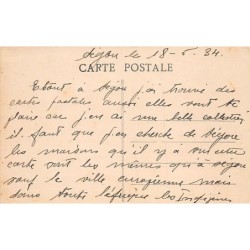 le 18-5.34.
CARTE POSTALE
Etant à j'ai trouvé des
cartes postales aussi elles vont te
plaire car j'en ai une belle collection
il faut que j'en cherche de
les qu'il y a sur cette
carte sont les mêmes qu'à
sauf la ville européenne mais
dans toute l'afrique les Indigènes